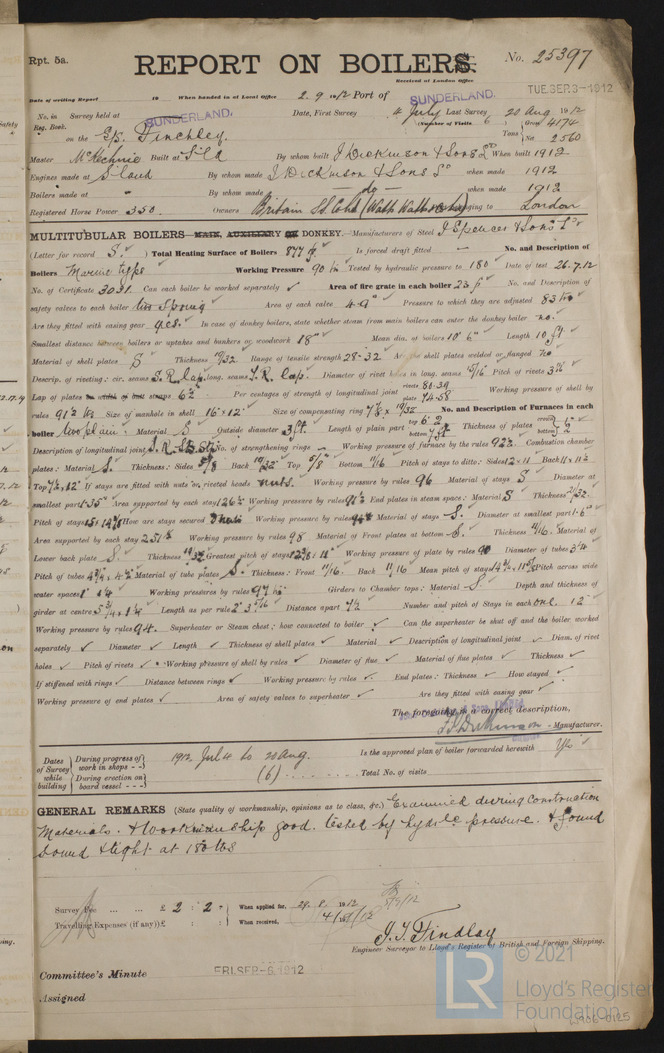 Rpt. 5a.
REPORT ON BOILERS.
No. 25397
Received at London Office
TUE. SEP. 3 - 1912
Date of writing Report 19 When handed in at Local Office 2. 9. 1912 Port of SUNDERLAND.
No. in Survey held at SUNDERLAND. Date, First Survey 4 July Last Survey 20 Aug 1912
Reg. Book. (Number of Visits 6)
on the S/S. Finchley. Tons Gross 4174 Net 2560
Master McKechnie Built at S'ld By whom built J Dickinson & Sons Ld When built 1912
Engines made at S'land By whom made J Dickinson & Sons Ld when made 1912
Boilers made at " By whom made — do — when made 1912
Registered Horse Power 350. Owners Britain SS Coy Ltd (Watts Watts & Co Ltd) Port belonging to London
MULTITUBULAR BOILERS MAIN, AUXILIARY OR DONKEY.—Manufacturers of Steel J Spencer & Sons Ld
(Letter for record S.) Total Heating Surface of Boilers 877 Is forced draft fitted — No. and Description of
Boilers Marine type Working Pressure 90 lbs Tested by hydraulic pressure to 180 Date of test 26.7.12
No. of Certificate 3031. Can each boiler be worked separately ✓ Area of fire grate in each boiler No. and Description of
safety valves to each boiler two Spring Area of each valve 4.9" Pressure to which they are adjusted 83 lbs
Are they fitted with easing gear yes. In case of donkey boilers, state whether steam from main boilers can enter the donkey boiler no.
Smallest distance between boilers or uptakes and bunkers or woodwork 18" Mean dia. of boilers 10' 6" Length 10 ft.
Material of shell plates S Thickness 19/32 Range of tensile strength 28-32 Are the shell plates welded or flanged no
Descrip. of riveting: cir. seams S.R. lap. long. seams T.R. lap. Diameter of rivet holes in long. seams Pitch of rivets
Lap of plates or width of butt straps 6½ Per centages of strength of longitudinal joint rivets 80.39 plate 74.58 Working pressure of shell by
rules 91½ lbs Size of manhole in shell 16" x 12" Size of compensating ring No. and Description of Furnaces in each
boiler two plain Material S Outside diameter 3 ft. Length of plain part top 6' 2 bottom 7 ft Thickness of plates crown bottom ½"
Description of longitudinal joint No. of strengthening rings — Working pressure of furnace by the rules 92½ Combustion chamber
plates: Material S. Thickness: Sides 5/8 Back 19/32 Top 5/8" Bottom 11/16 Pitch of stays to ditto: Sides 12 x 11 Back 11 x 11½
Top If stays are fitted with nuts or riveted heads nuts. Working pressure by rules 96 Material of stays S Diameter at
smallest part 1.35" Area supported by each stay 126½ Working pressure by rules 91½ End plates in steam space: Material S Thickness 21/32.
Pitch of stays How are stays secured D nuts Working pressure by rules Material of stays S. Diameter at smallest part
Area supported by each stay Working pressure by rules 98 Material of Front plates at bottom S. Thickness 11/16. Material of
Lower back plate S. Thickness 19/32 Greatest pitch of stays Working pressure of plate by rules 90 Diameter of tubes 3¼
Pitch of tubes Material of tube plates S. Thickness: Front 11/16. Back 11/16 Mean pitch of stays Pitch across wide
water spaces Working pressures by rules 97 lbs Girders to Chamber tops: Material S. Depth and thickness of
girder at centre 5 ¾ x 1 ¼ Length as per rule Distance apart 7½ Number and pitch of Stays in each one. 12"
Working pressure by rules 94. Superheater or Steam chest; how connected to boiler ✓ Can the superheater be shut off and the boiler worked
separately ✓ Diameter ✓ Length ✓ Thickness of shell plates ✓ Material ✓ Description of longitudinal joint ✓ Diam. of rivet
holes ✓ Pitch of rivets ✓ Working pressure of shell by rules ✓ Diameter of flue ✓ Material of flue plates ✓ Thickness ✓
If stiffened with rings ✓ Distance between rings ✓ Working pressure by rules ✓ End plates: Thickness ✓ How stayed ✓
Working pressure of end plates ✓ Area of safety valves to superheater ✓ Are they fitted with easing gear ✓
The foregoing is a correct description,
Manufacturer.
Dates of Survey while building
During progress of work in shops - - 1912 July 4 to 20 Aug.
Is the approved plan of boiler forwarded herewith Yes ✓
During erection on board vessel - - - (6)
Total No. of visits
GENERAL REMARKS (State quality of workmanship, opinions as to class, &c.) Examined during Construction
Materials & Workmanship good. tested by hydlc pressure. & found
Sound & tight at 180 lbs
Survey Fee ... ... £ 2 : 2 : When applied for, 29. 8. 1912
Travelling Expenses (if any) £ : : When received,
J. T. Findlay
Engineer Surveyor to Lloyd's Register of British and Foreign Shipping.
Committee's Minute FRI. SEP - 6. 1912
Assigned
© 2021
LR
Lloyd's Register
Foundation
W906-0125